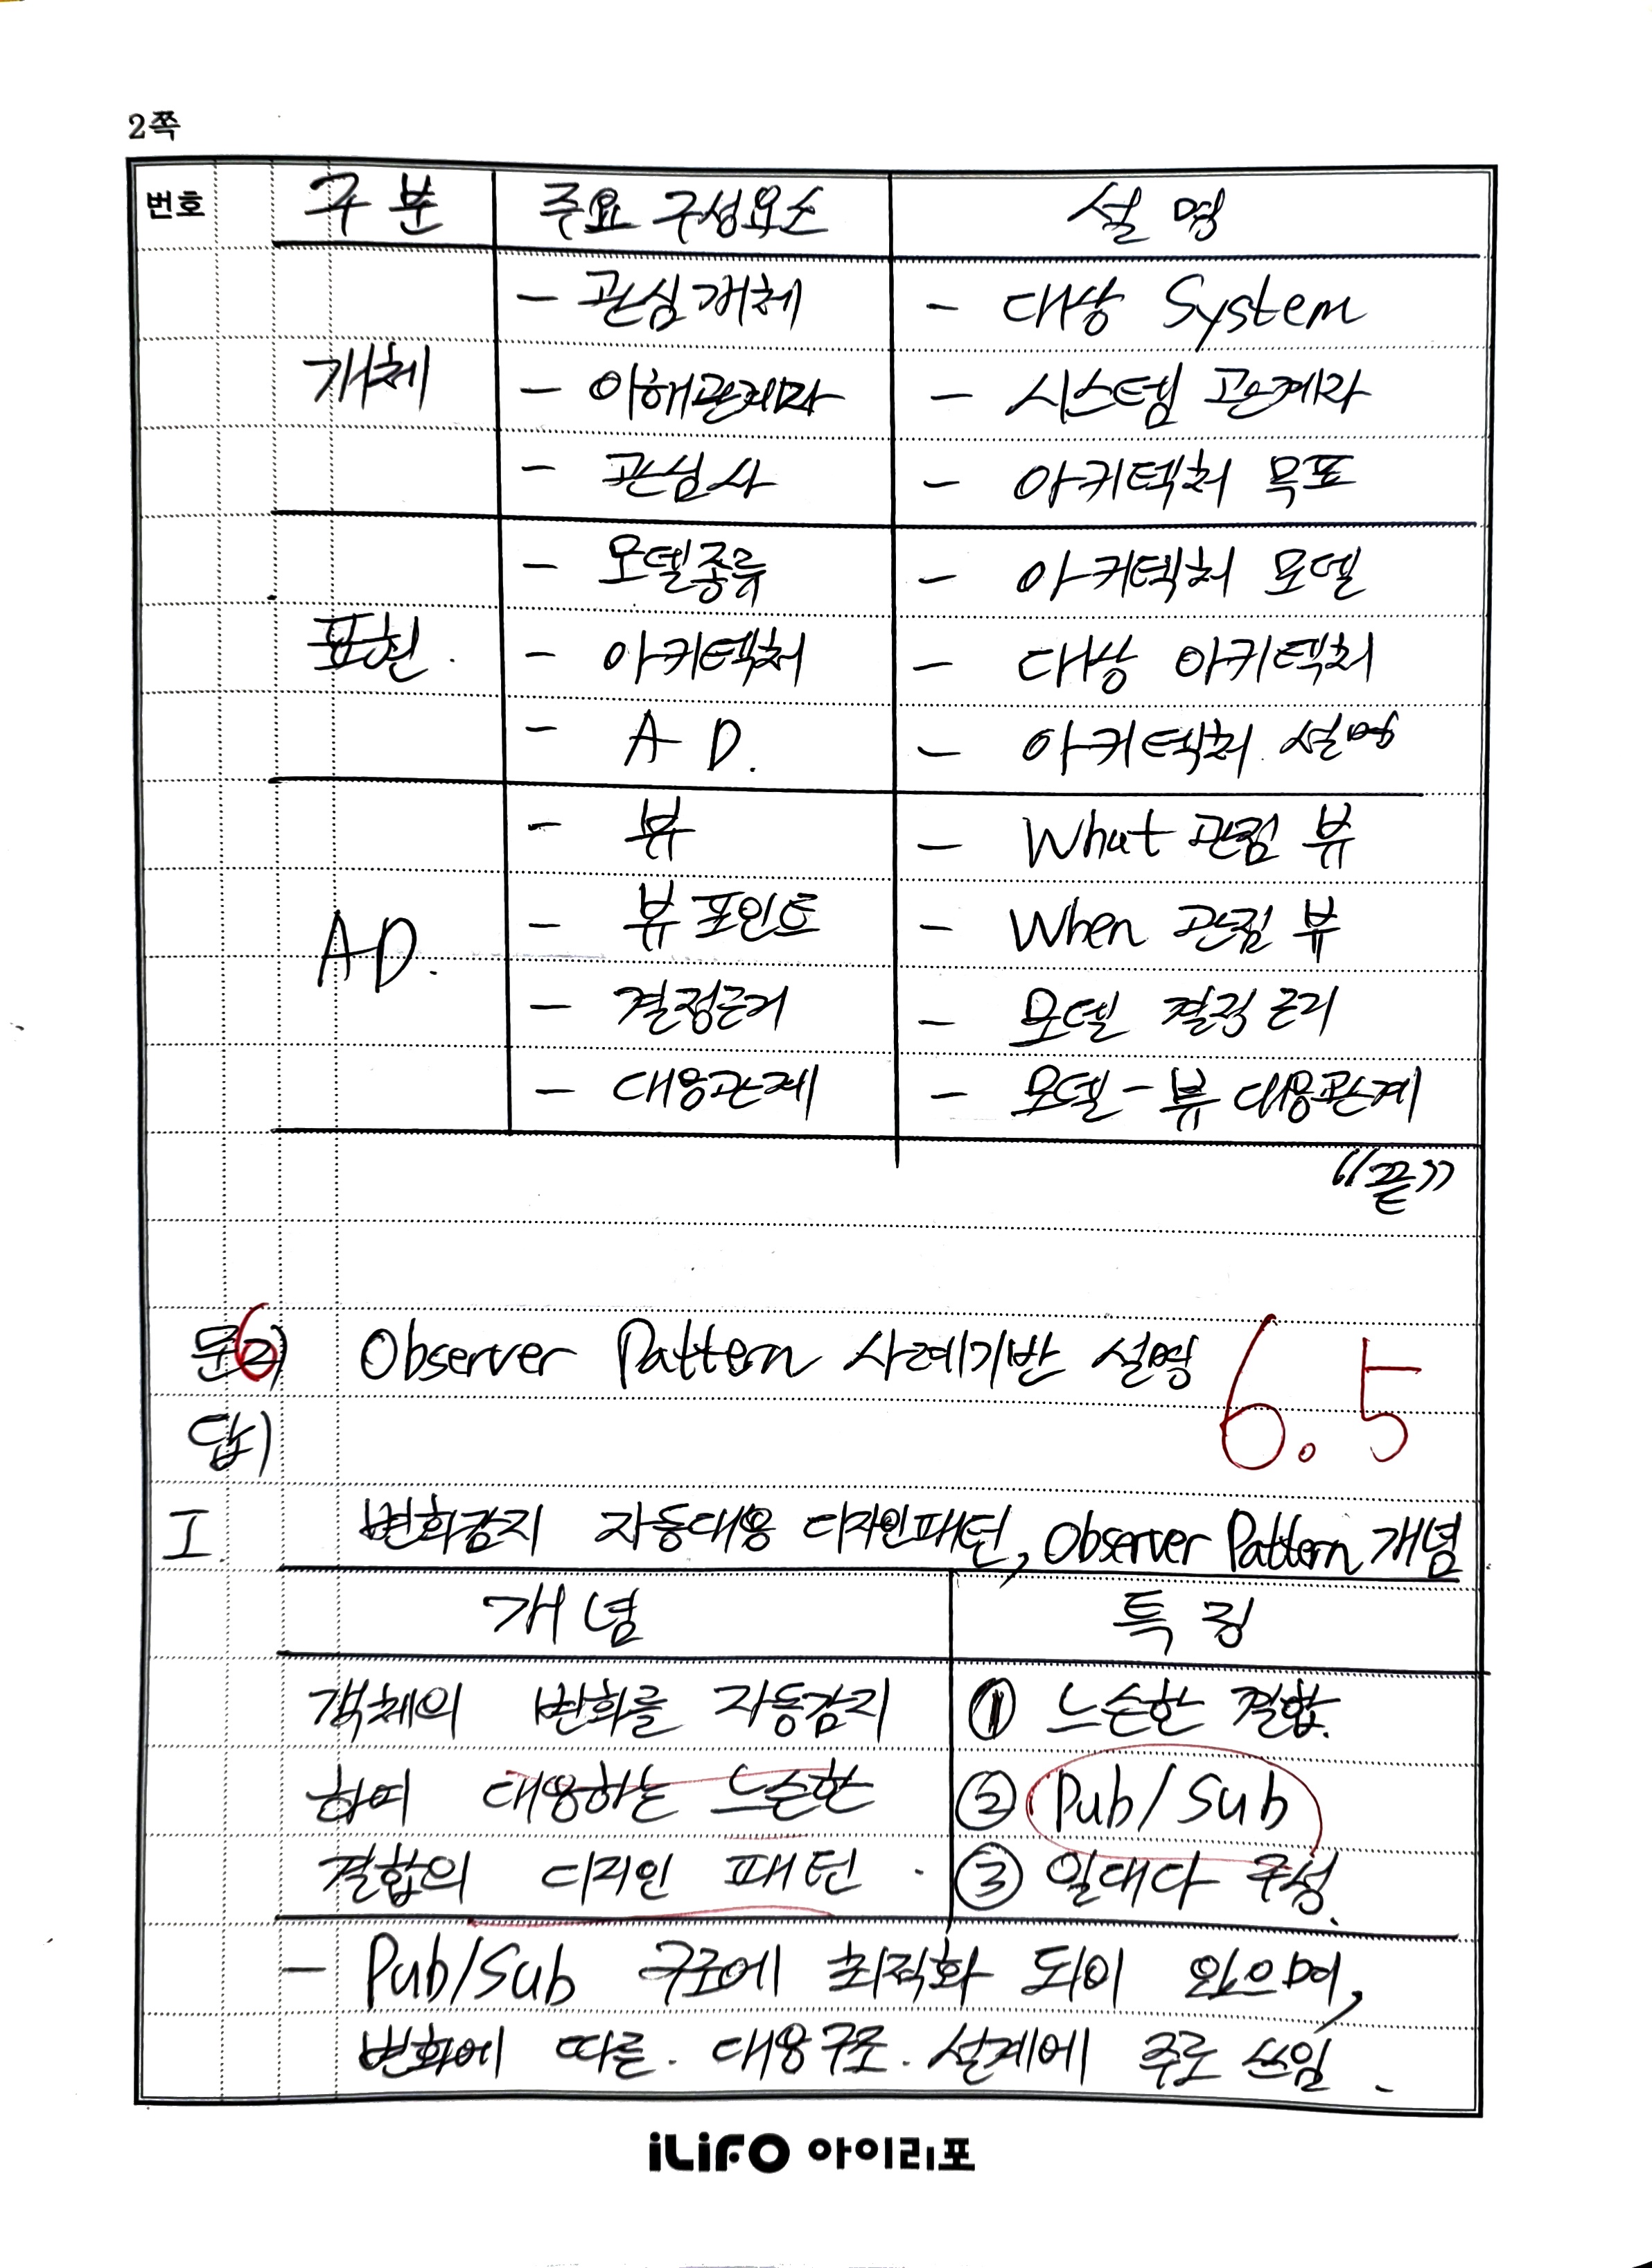 2쪽
번호 구분 주요 구성요소 설명
- 관심개체 - 대상 System
개체 - 이해관계자 - 시스템 관계자
- 관심사 - 아키텍처 목표
- 모델종류 - 아키텍처 모델
표현. - 아키텍처 - 대상 아키텍처
- A D. - 아키텍처 설명
- 뷰 - What 관점 뷰
AD. - 뷰포인트 - When 관점 뷰
- 결정근거 - 모델 결정 근거
- 대응관계 - 모델-뷰 대응관계
"끝"
문 6) Observer Pattern 사례기반 설명 6.5
답)
I. 변화감지 자동대응 디자인패턴, Observer Pattern 개념
개념 특징
객체의 변화를 자동감지 ① 느슨한 결합.
하여 대응하는 느슨한 ② Pub/Sub
결합의 디자인 패턴. ③ 일대다 구성.
- Pub/Sub 구조에 최적화 되어 있으며,
변화에 따른. 대응구조. 설계에 주로 쓰임.
iLiFO 아이리포